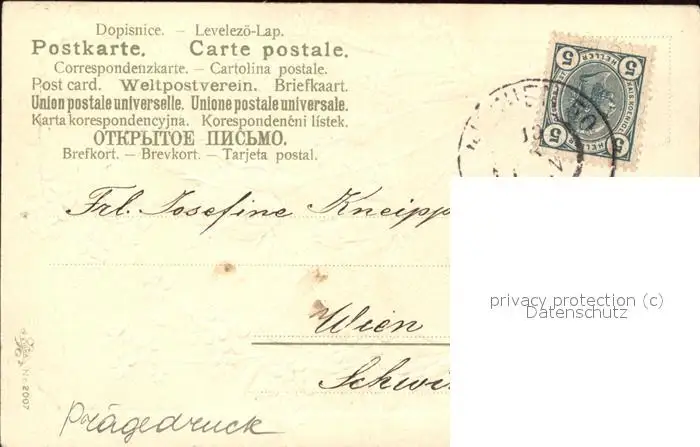 Dopisnice. – Levelező-Lap.
Postkarte. Carte postale.
Correspondenzkarte. – Cartolina postale.
Post card. Weltpostverein. Briefkaart.
Union postale universelle. Unione postale universale.
Karta korespondencyjna. Korespondenční lístek.
ОТКРЫТОЕ ПИСЬМО.
Brefkort. – Brevkort. – Tarjeta postal.
5 HELLER 5
5 HELLER 5
Frl. Josefine Kneipp
privacy protection (c)
Datenschutz
Wien
Schwi
No 2007
Prägedruck